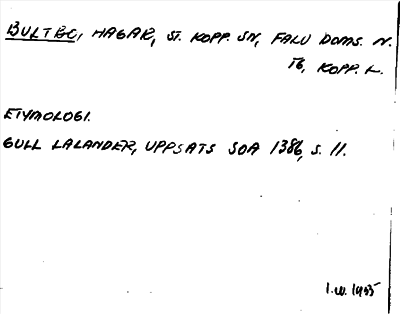 BULTBO, HAGAR, ST. KOPP. SN, FALU DOMS. N.
TG, KOPP. L.
ETYMOLOGI.
GULL LALANDER, UPPSATS SOA 1386, S. 11.
I.W. 1955